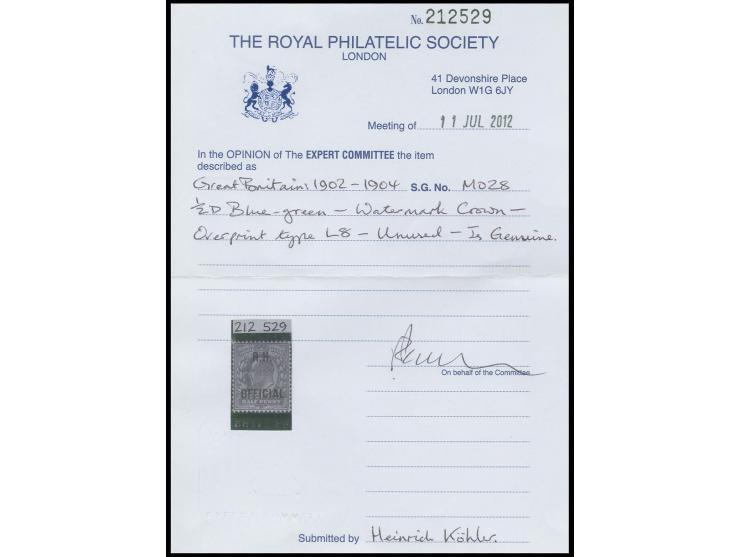 No. 212529
THE ROYAL PHILATELIC SOCIETY
LONDON
41 Devonshire Place
London W1G 6JY
Meeting of 11 JUL 2012
In the OPINION of The EXPERT COMMITTEE the item
described as
Great Britain, 1902-1904 S.G. No. MO28
½D Blue-green - Watermark Crown -
Overprint type L8 - Unused - Is Genuine.
212 529
R.H.
OFFICIAL
HALF PENNY
On behalf of the Committee
Submitted by Heinrich Köhler.